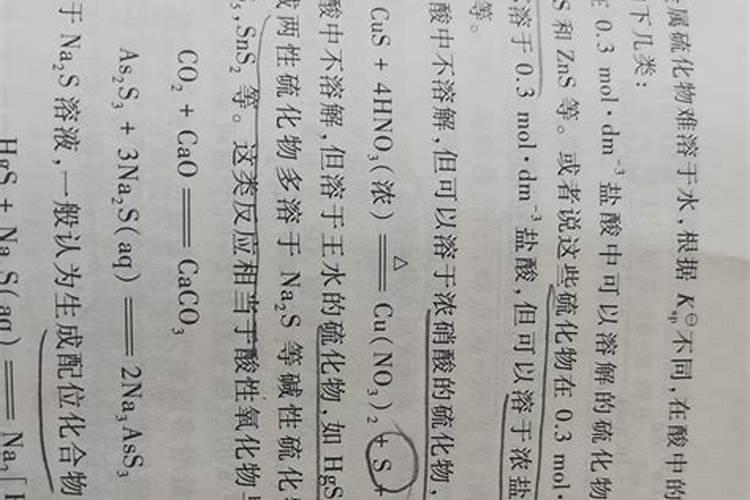 属硫化物难溶于水,根据 K⊖sp不同,在酸中的
下几类:
在 0.3 mol·dm⁻³ 盐酸中可以溶解的硫化物
S 和 ZnS 等。或者说这些硫化物在 0.3 mol·
溶于 0.3 mol·dm⁻³ 盐酸,但可以溶于浓盐
等。
酸中不溶解,但可以溶于浓硝酸的硫化物,
CuS + 4HNO₃(浓) ══△══ Cu(NO₃)₂ + S
酸中不溶解,但溶于王水的硫化物,如 HgS
两性硫化物多溶于 Na₂S 等碱性硫化
,SnS₂ 等。这类反应相当于酸性氧化物
CO₂ + CaO ═══ CaCO₃
As₂S₃ + 3Na₂S(aq) ═══ 2Na₃AsS₃
于 Na₂S 溶液,一般认为生成配位化合物
HgS + Na₂S(aq) ═══ Na₂[